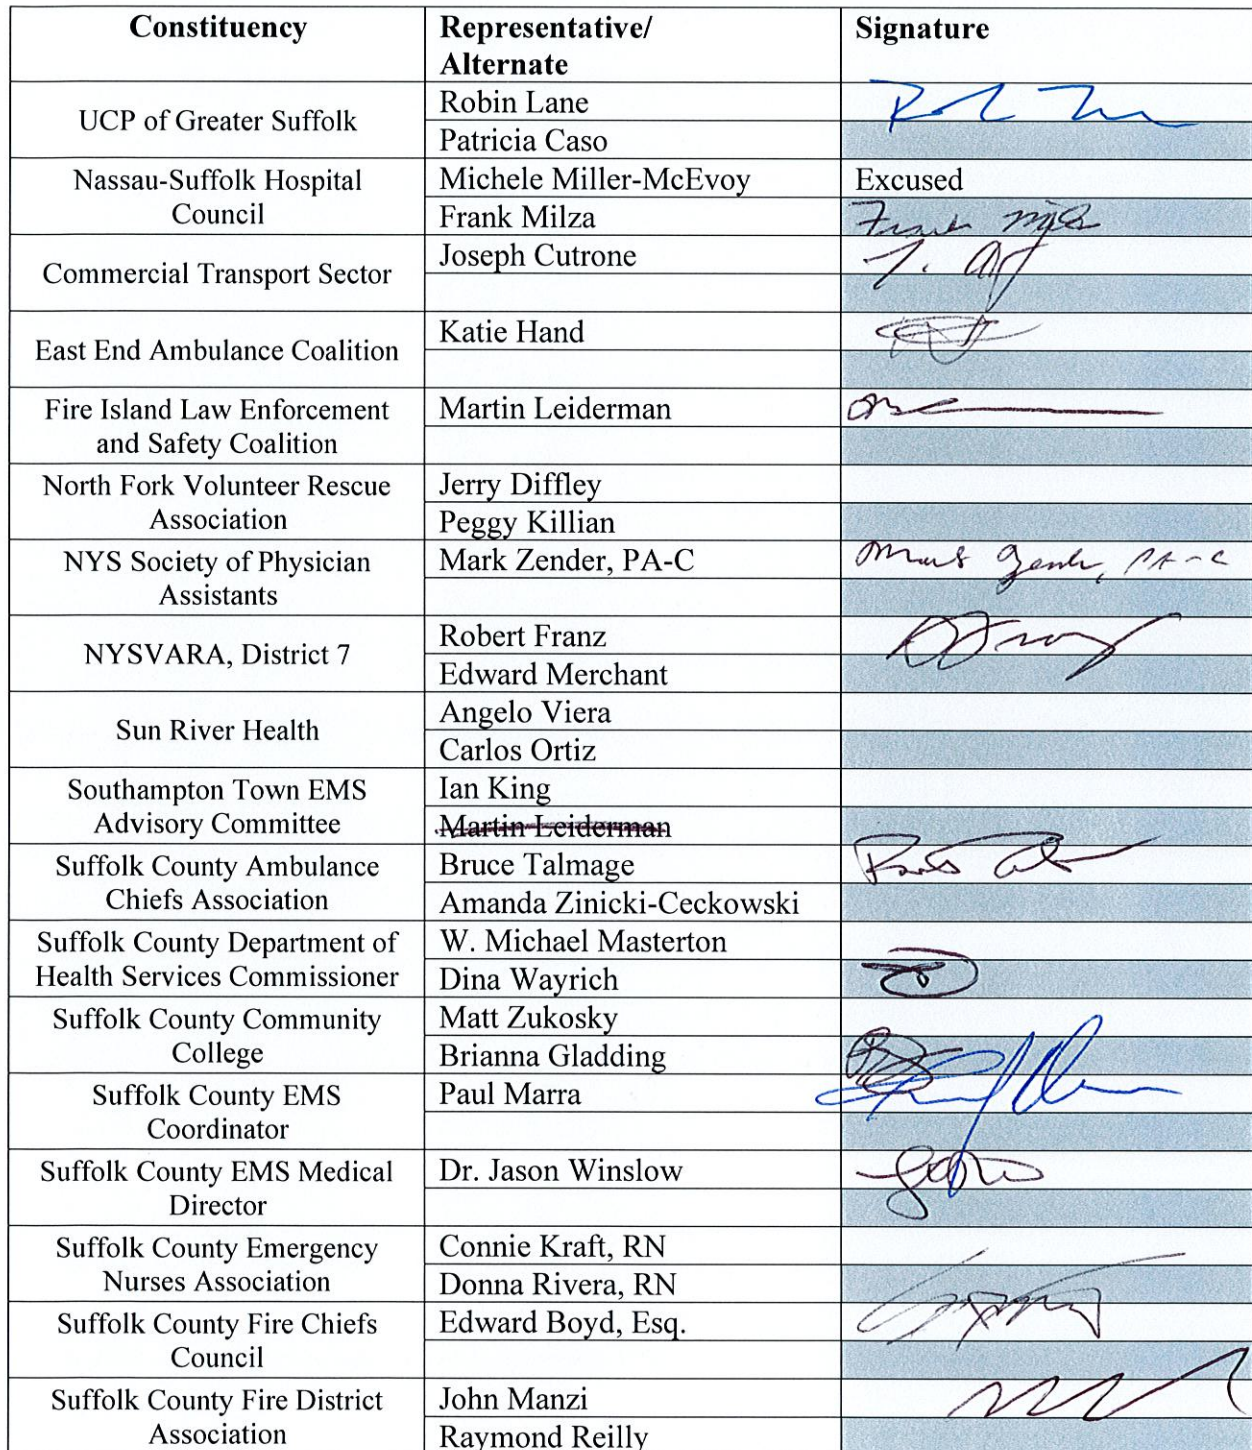 Constituency Representative/ Signature
Alternate
UCP of Greater Suffolk
Robin Lane
Patricia Caso
Nassau-Suffolk Hospital
Council
Michele Miller-McEvoy Excused
Frank Milza
Commercial Transport Sector
Joseph Cutrone
East End Ambulance Coalition
Katie Hand
Fire Island Law Enforcement
and Safety Coalition
Martin Leiderman
North Fork Volunteer Rescue
Association
Jerry Diffley
Peggy Killian
NYS Society of Physician
Assistants
Mark Zender, PA-C Mark Zender, PA-C
NYSVARA, District 7
Robert Franz
Edward Merchant
Sun River Health
Angelo Viera
Carlos Ortiz
Southampton Town EMS
Advisory Committee
Ian King
Martin Leiderman
Suffolk County Ambulance
Chiefs Association
Bruce Talmage
Amanda Zinicki-Ceckowski
Suffolk County Department of
Health Services Commissioner
W. Michael Masterton
Dina Wayrich
Suffolk County Community
College
Matt Zukosky
Brianna Gladding
Suffolk County EMS
Coordinator
Paul Marra
Suffolk County EMS Medical
Director
Dr. Jason Winslow
Suffolk County Emergency
Nurses Association
Connie Kraft, RN
Donna Rivera, RN
Suffolk County Fire Chiefs
Council
Edward Boyd, Esq.
Suffolk County Fire District
Association
John Manzi
Raymond Reilly